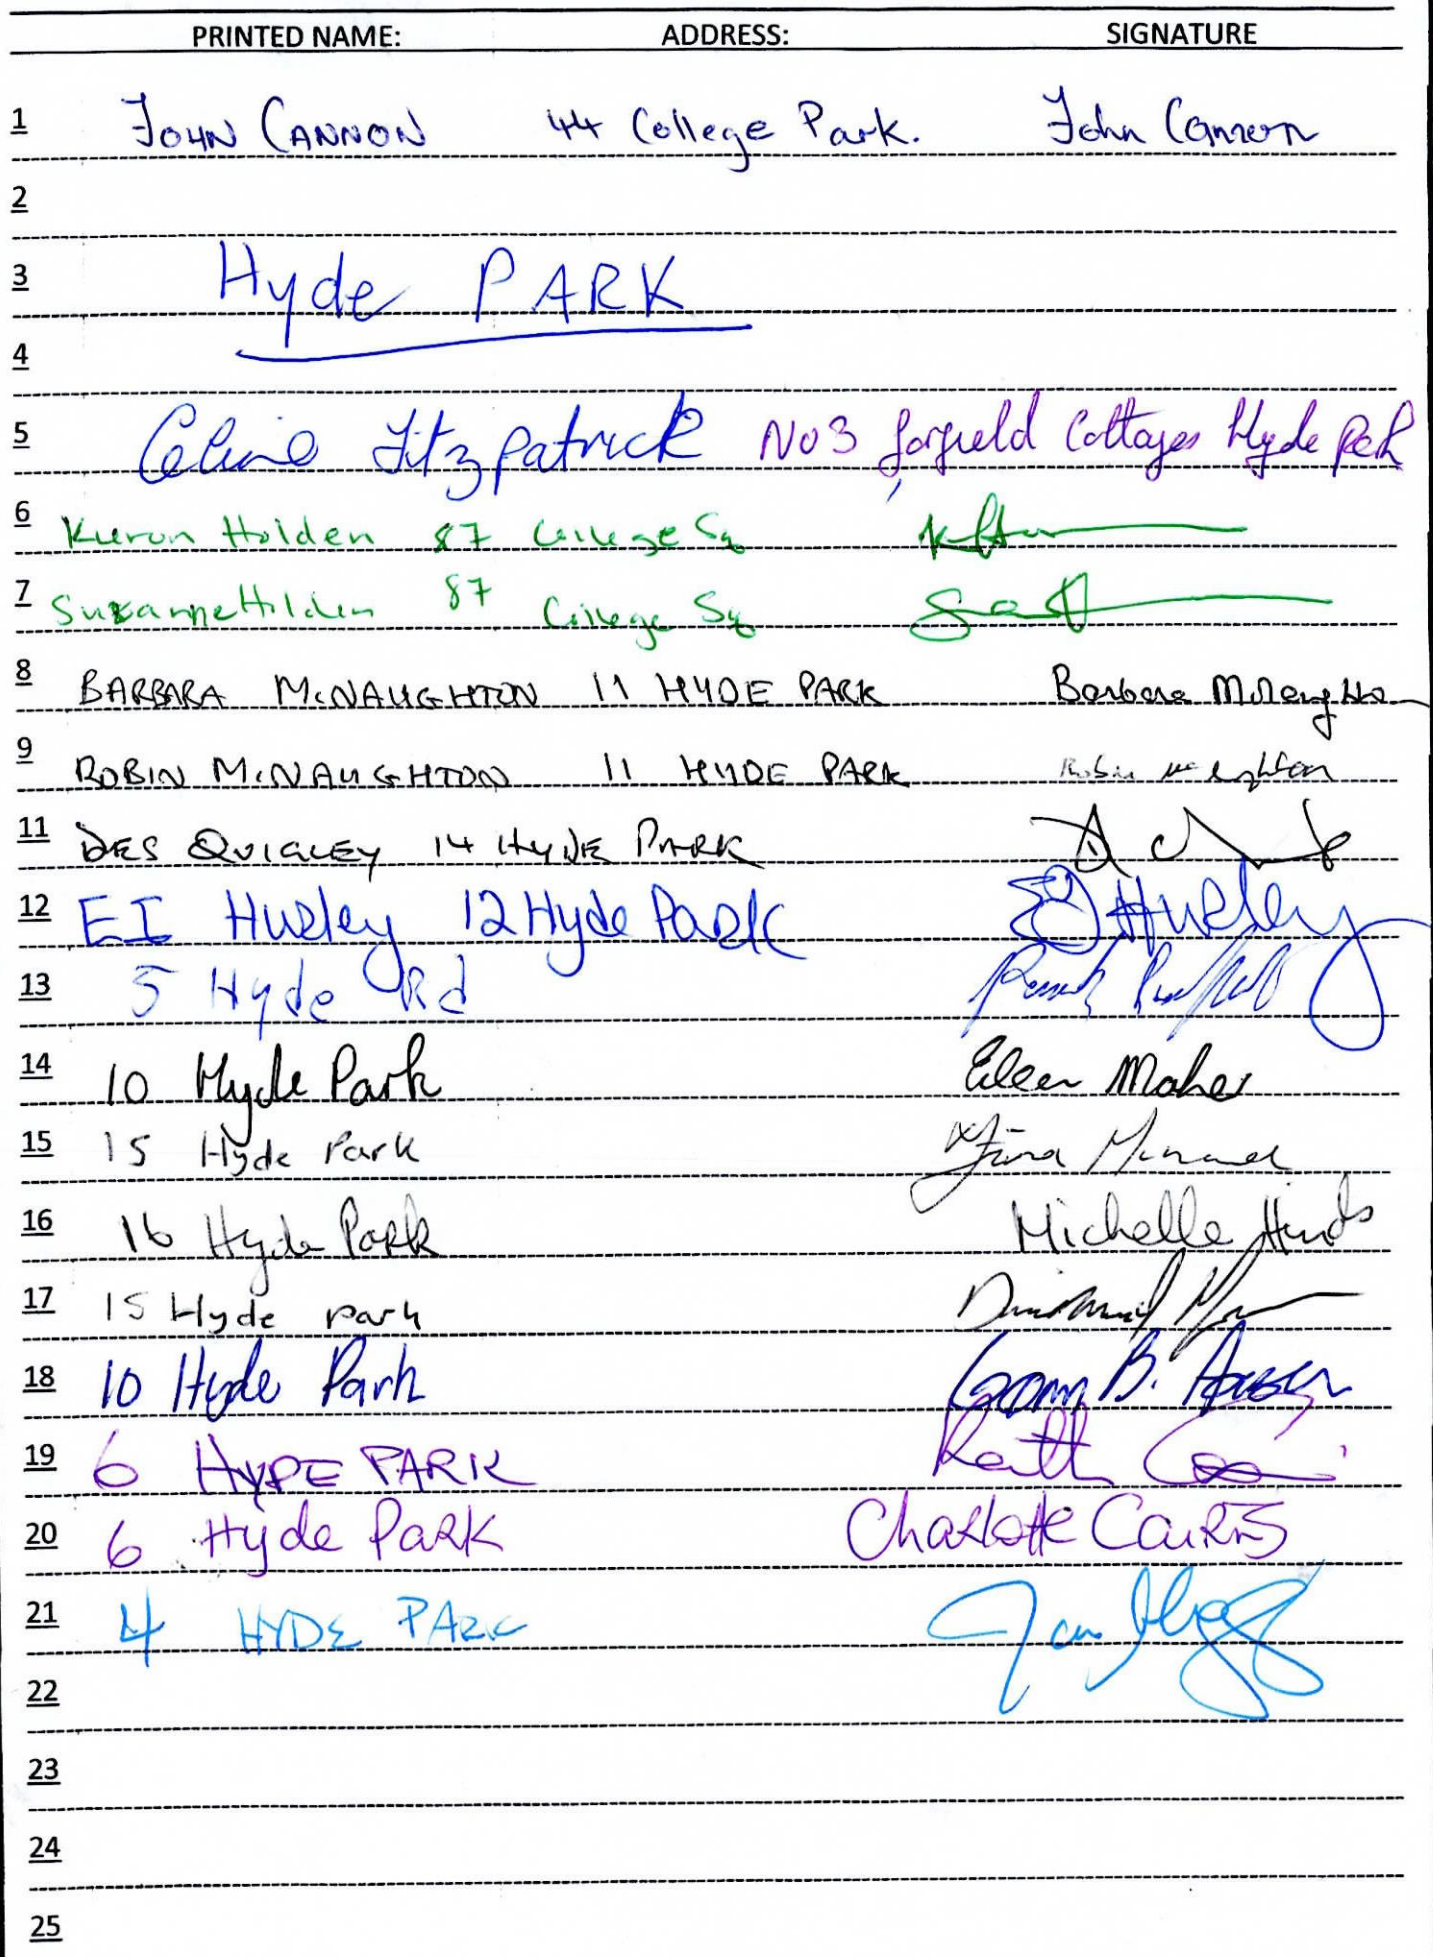 PRINTED NAME: ADDRESS: SIGNATURE
1 JOHN CANNON 44 College Park. John Cannon
2
3 Hyde PARK
4
5 Celine Fitzpatrick No 3 Cottages Hyde Park
6 Holden 87 College Sq
7 Suzanne Holden 87 College Sq
8 BARBARA McNAUGHTON 11 HYDE PARK Barbara McNaughton
9 ROBIN McNAUGHTON 11 HYDE PARK Robin McNaughton
11 DES QUIGLEY 14 HYDE PARK
12 EI Hurley 12 Hyde Park Hurley
13 5 Hyde Rd
14 10 Hyde Park Eileen Maher
15 15 Hyde Park
16 16 Hyde Park Michelle Hinds
17 15 Hyde park
18 10 Hyde Park B.
19 6 HYDE PARK
20 6 Hyde Park Charlotte Cairns
21 4 HYDE PARK
22
23
24
25